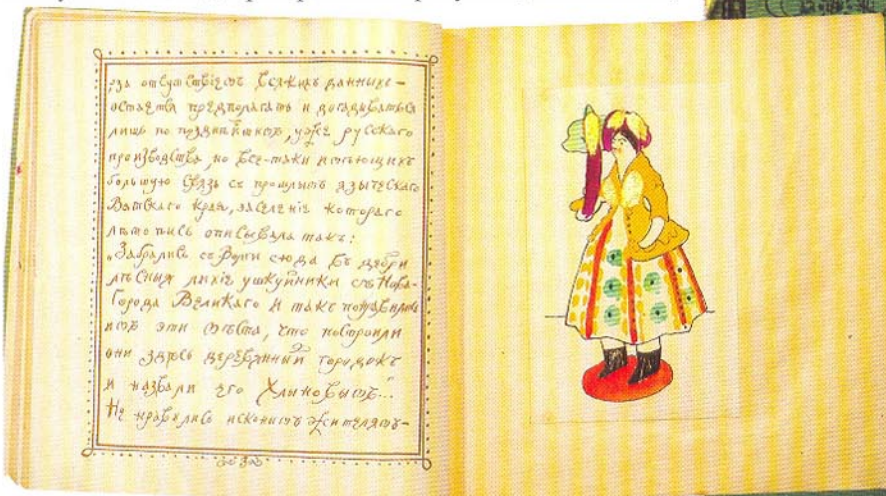 за отсутствіемъ всякихъ данныхъ –
остается предполагать и догадываться
лишь по позднѣйшимъ, уже русскаго
производства но все-таки имѣющихъ
большую связь съ прошлымъ языческаго
Вятскаго края, заселеніе котораго
лѣтопись описывала такъ:
„Забрались съ Вуни сюда въ дебри
лѣсныя лихіе ушкуйники съ Нова-
Города Великаго и такъ понравились
имъ эти мѣста, что построили
они здѣсь деревянный городокъ
и назвали его Хлыновымъ...
Не нравились исконнымъ жителямъ –